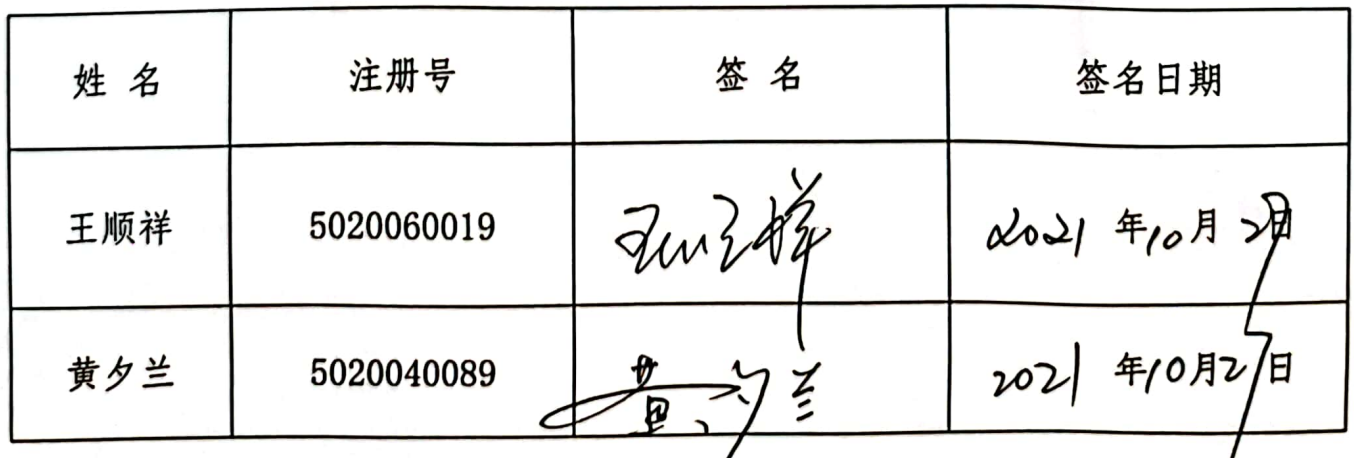 姓 名 注册号 签 名 签名日期
王顺祥 5020060019 王顺祥 2021 年10月27日
黄夕兰 5020040089 黄夕兰 2021 年10月27日